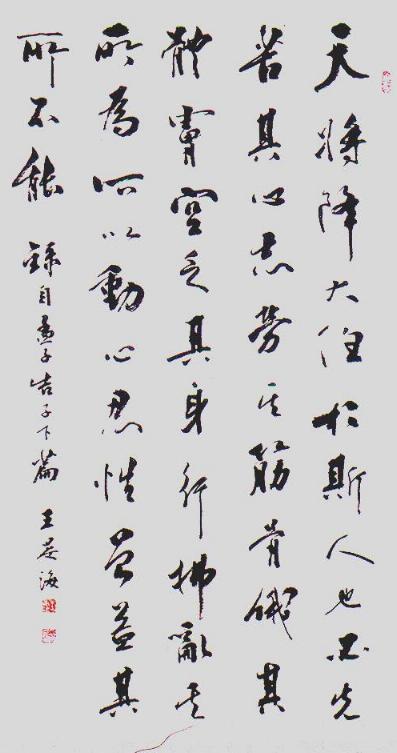 天將降大任於斯人也必先
苦其心志勞其筋骨餓其
體膚空乏其身行拂亂其
所為所以動心忍性曾益其
所不能 錄自孟子告子下篇 王海